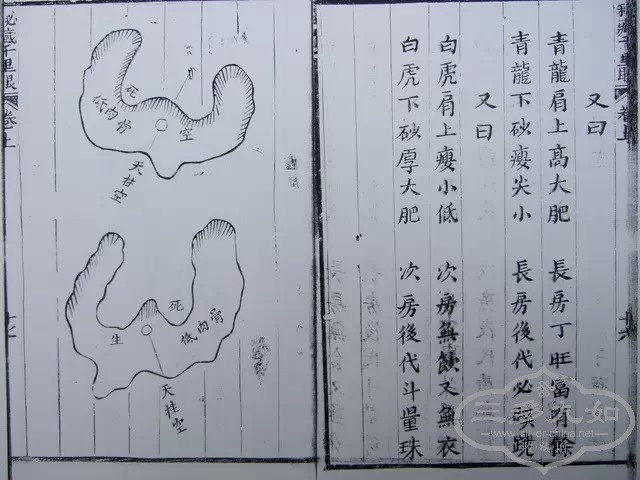 秘藏千里眼 卷上
又曰
青龍肩上高大肥 長房丁旺富有餘
青龍下砂瘦尖小 長房後代必
又曰
白虎肩上瘦小低 次房無飲又無衣
白虎下砂厚大肥 次房後代斗量珠
死
空
低肉骨
天柱空
死
生
低肉骨
天柱空
秘藏千里眼 卷上